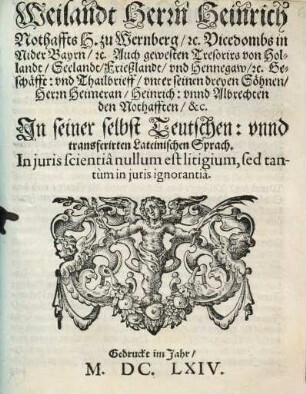 Weilandt Herrn Heinrich
Nothaffts H. zu Wernberg / ꝛc. Vicedombs in
Nider Bayrn / ꝛc. Auch gewesten Tresorirs von Hol-
landt / Seelandt / Frießlandt / vnd Hennegaw / ꝛc. Ge-
schäfft: vnd Thailbrieff / vnter seinen dreyen Söhnen /
Herrn Heimeran / Heinrich: vnnd Albrechten
den Nothafften / &c.
In seiner selbst Teutschen: vnnd
transferirten Lateinischen Sprach.
In juris scientiâ nullum est litigium, sed tan-
tùm in juris ignorantiâ.
Gedruckt im Jahr /
M. DC. LXIV.